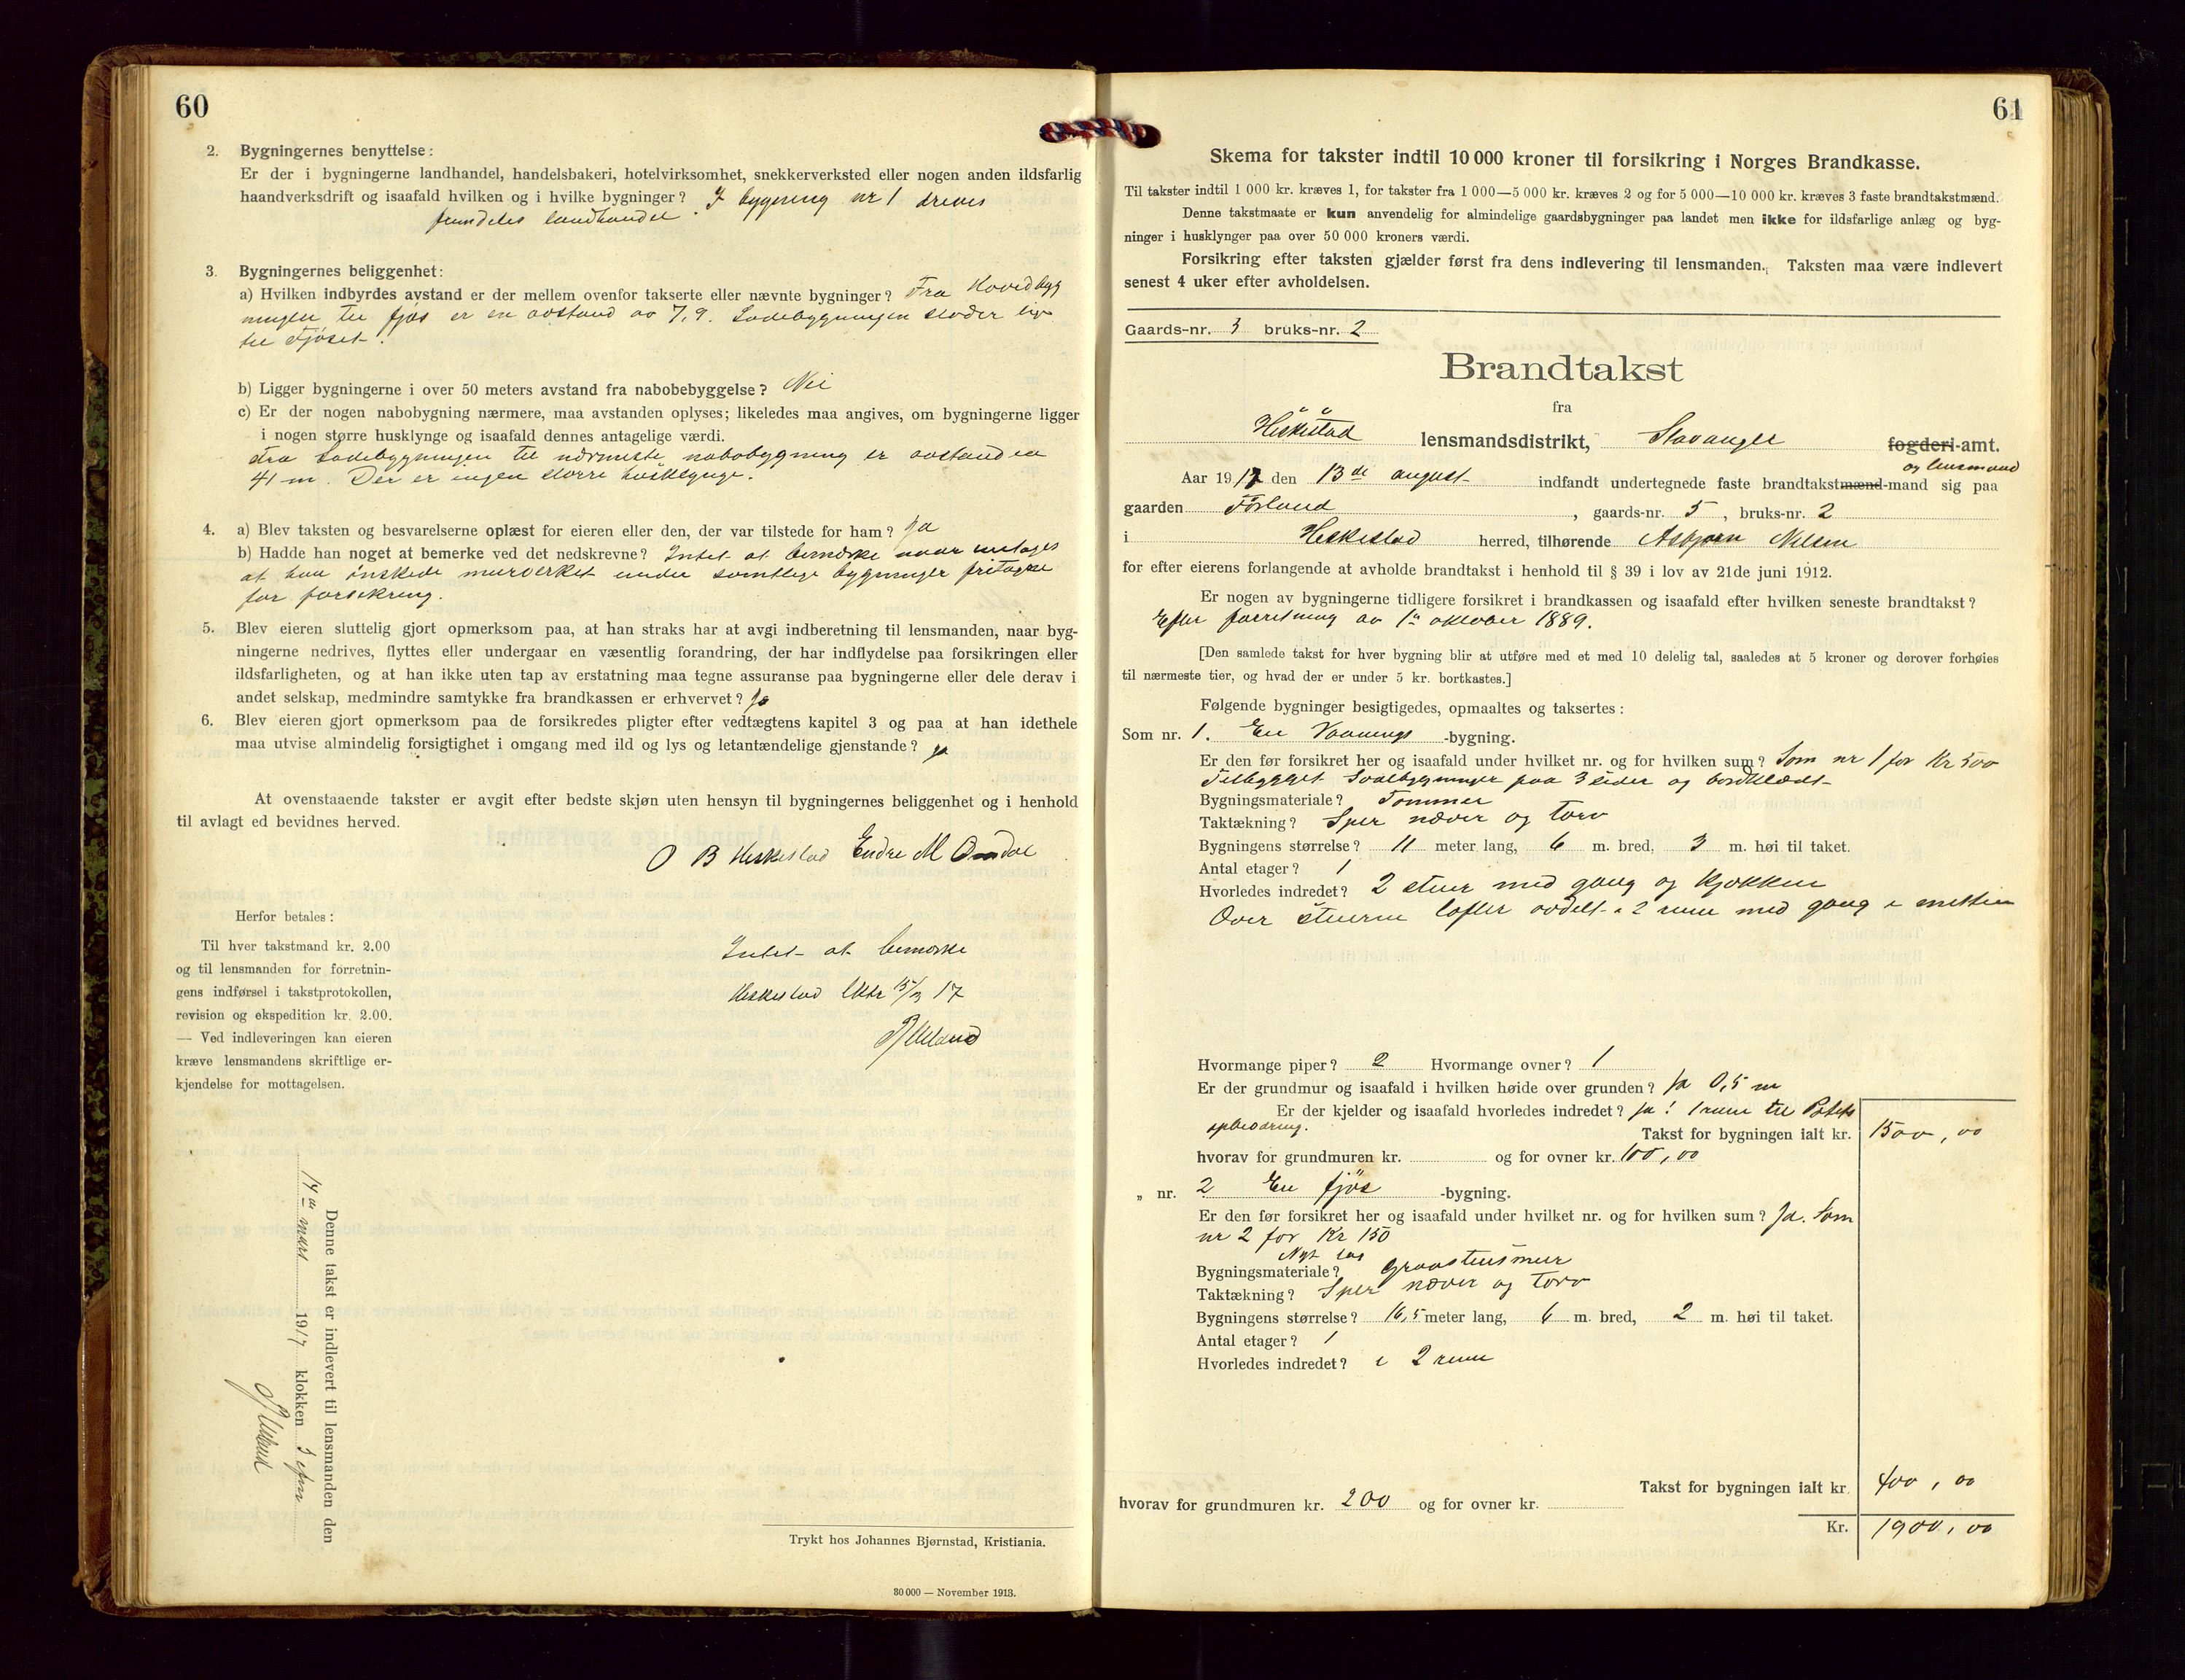 60
2. Bygningernes benyttelse:
Er der i bygningerne landhandel, handelsbakeri, hotelvirksomhet, snekkerverksted eller nogen anden ildsfarlig
haandverksdrift og isaafald hvilken og i hvilke bygninger? I bygning nr 1 drives
fremdeles landhandel.
3. Bygningernes beliggenhet:
a) Hvilken indbyrdes avstand er der mellem ovenfor takserte eller nævnte bygninger? Fra Hovedbyg
ningen til fjøs er en avstand av 7,9. Ladebygningen støder
til Fjøset.
b) Ligger bygningerne i over 50 meters avstand fra nabobebyggelse? Nei
c) Er der nogen nabobygning nærmere, maa avstanden oplyses; likeledes maa angives, om bygningerne ligger
i nogen større husklynge og isaafald dennes antagelige værdi.
Fra Ladebygningen til nærmeste nabobygning er avstanden
41 m. Der er ingen større husklynge.
4. a) Blev taksten og besvarelserne oplæst for eieren eller den, der var tilstede for ham? Ja
b) Hadde han noget at bemerke ved det nedskrevne? Intet at bemærke naar untages
at han ønskede murverket under samtlige bygninger fritagne
for forsikring.
5. Blev eieren sluttelig gjort opmerksom paa, at han straks har at avgi indberetning til lensmanden, naar byg-
ningerne nedrives, flyttes eller undergaar en væsentlig forandring, der har indflydelse paa forsikringen eller
ildsfarligheten, og at han ikke uten tap av erstatning maa tegne assuranse paa bygningerne eller dele derav i
andet selskap, medmindre samtykke fra brandkassen er erhvervet? Ja
6. Blev eieren gjort opmerksom paa de forsikredes pligter efter vedtægtens kapitel 3 og paa at han idethele
maa utvise almindelig forsigtighet i omgang med ild og lys og letantændelige gjenstande? ja
At ovenstaaende takster er avgit efter bedste skjøn uten hensyn til bygningernes beliggenhet og i henhold
til avlagt ed bevidnes herved.
O B Heskestad Endre M Omdal
Herfor betales:
Til hver takstmand kr. 2.00
og til lensmanden for forretnin-
gens indførsel i takstprotokollen,
revision og ekspedition kr. 2.00.
— Ved indleveringen kan eieren
kræve lensmandens skriftlige er-
kjendelse for mottagelsen.
Intet at bemærke
Heskestad lktr 15/3 17
Denne takst er indlevert til lensmanden den
14de mars 1917 klokken 3 efm
Trykt hos Johannes Bjørnstad, Kristiania.
30 000 — November 1913.
61
Skema for takster indtil 10 000 kroner til forsikring i Norges Brandkasse.
Til takster indtil 1 000 kr. kræves 1, for takster fra 1 000—5 000 kr. kræves 2 og for 5 000—10 000 kr. kræves 3 faste brandtakstmænd.
Denne takstmaate er kun anvendelig for almindelige gaardsbygninger paa landet men ikke for ildsfarlige anlæg og byg-
ninger i husklynger paa over 50 000 kroners værdi.
Forsikring efter taksten gjælder først fra dens indlevering til lensmanden. Taksten maa være indlevert
senest 4 uker efter avholdelsen.
Gaards-nr. 3 bruks-nr. 2
Brandtakst
fra
Heskestad lensmandsdistrikt, Stavanger fogderi-amt.
og lensmand
Aar 1917 den 13de august indfandt undertegnede faste brandtakstmænd-mand sig paa
gaarden Førland, gaards-nr. 5, bruks-nr. 2
i Heskestad herred, tilhørende Asbjørn Nilsen
for efter eierens forlangende at avholde brandtakst i henhold til § 39 i lov av 21de juni 1912.
Er nogen av bygningerne tidligere forsikret i brandkassen og isaafald efter hvilken seneste brandtakst?
Efter forretning av 1te oktober 1889.
[Den samlede takst for hver bygning blir at utføre med et med 10 delelig tal, saaledes at 5 kroner og derover forhøies
til nærmeste tier, og hvad der er under 5 kr. bortkastes.]
Følgende bygninger besigtigedes, opmaaltes og taksertes:
Som nr. 1. En Vaanings-bygning.
Er den før forsikret her og isaafald under hvilket nr. og for hvilken sum? Som nr 1 for Kr 500
Tilbygget Svalbygninger paa 3 sider og bordklædt
Bygningsmateriale? Tømmer
Taktækning? Sper næver og torv
Bygningens størrelse? 11 meter lang, 6 m. bred, 3 m. høi til taket.
Antal etager? 1
Hvorledes indredet? 2 stuer med gang og Kjøkken
Over stuerne lofter avdelt i 2 rum med gang i mitten
Hvormange piper? 2 Hvormange ovner? 1
Er der grundmur og isaafald i hvilken høide over grunden? Ja 0,5 m
Er der kjelder og isaafald hvorledes indredet? ja! 1 rum til Potet
opbevaring.
Takst for bygningen ialt kr. 1500,00
hvorav for grundmuren kr. og for ovner kr. 100,00
„ nr. 2 En fjøs-bygning.
Er den før forsikret her og isaafald under hvilket nr. og for hvilken sum? Ja. Som
nr 2 for Kr 150
Nyt tag
Bygningsmateriale? Graastensmur
Taktækning? Sper næver og torv
Bygningens størrelse? 16,5 meter lang, 6 m. bred, 2 m. høi til taket.
Antal etager? 1
Hvorledes indredet? i 2 rum
Takst for bygningen ialt kr. 400,00
hvorav for grundmuren kr. 200 og for ovner kr.
Kr. 1900,00